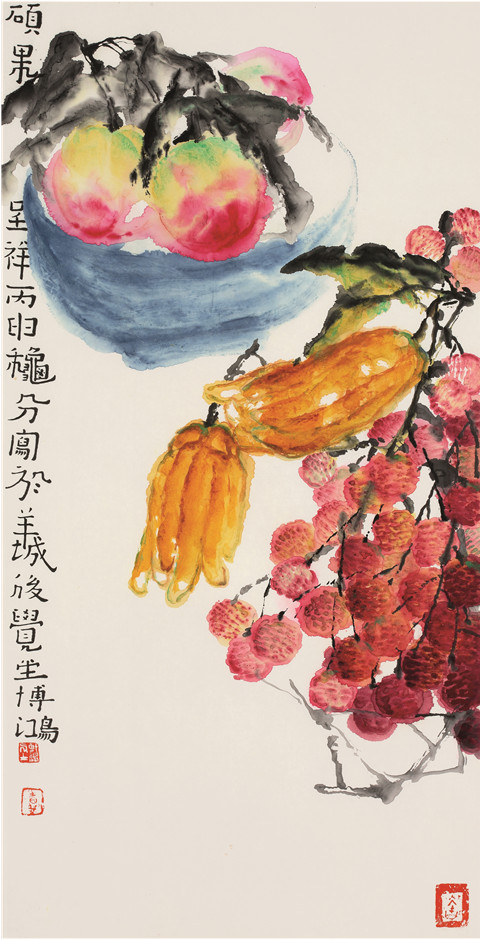 碩果呈祥丙申龝分寫於羊城後覺生博鴻